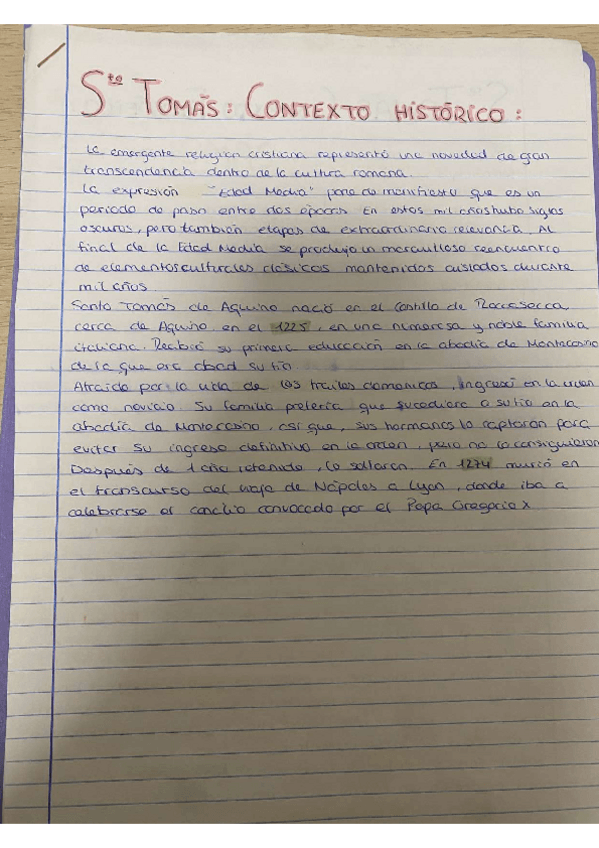 Sto TOMÁS: CONTEXTO HISTÓRICO:
La emergente religión cristiana representó una novedad de gran
transcendencia dentro de la cultura romana.
La expresión "Edad Media" pone de manifiesto que es un
periodo de paso entre dos épocas. En estos mil años hubo siglos
oscuros, pero también etapas de extraordinaria relevancia. Al
final de la Edad Media se produjo un maravilloso reencuentro
de elementos culturales clásicos mantenidos aislados durante
mil años.
Santo Tomás de Aquino nació en el castillo de Roccasecca,
cerca de Aquino, en el 1225, en una numerosa y noble familia
italiana. Recibió su primera educación en la abadía de Montecasino
de la que era abad su tío.
Atraído por la vida de los frailes dominicos, ingresó en la orden
como novicio. Su familia prefería que sucediera a su tío en la
abadía de Montecasino, así que, sus hermanos lo raptaron para
evitar su ingreso definitivo en la orden, pero no lo consiguieron
Después de 1 año retenido, lo soltaron. En 1274 murió en
el transcurso del viaje de Nápoles a Lyon, donde iba a
celebrarse el concilio convocado por el Papa Gregorio X